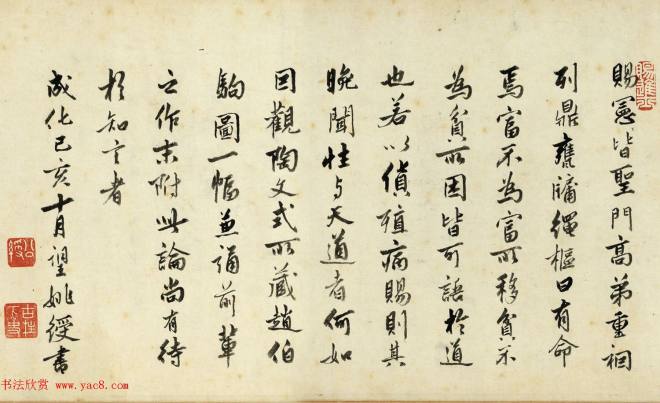 賜憲皆聖門高弟重裀
列鼎甕牖繩樞曰有命
焉富不為富所移貧不
為貧所困皆可語於道
也若以貨殖病賜則其
晚聞性与天道者何如
因觀陶文式所藏趙伯
駒圖一幅兼誦前輩
之作末附此論尚有待
於知言者
成化己亥十月望姚綬書
公綬
书法欣赏 www.yac8.com